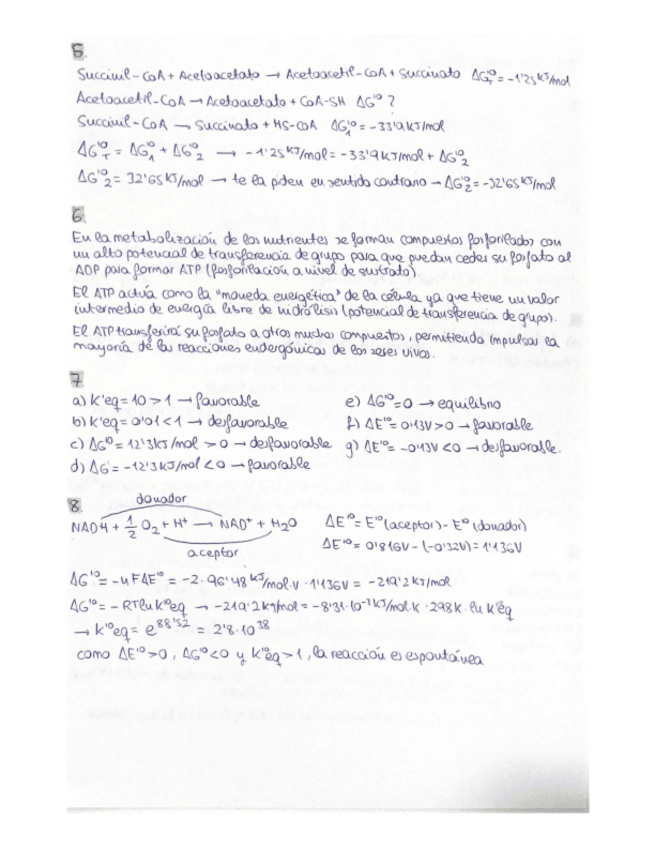 5.
Succinil-CoA + Acetoacetato → Acetoacetil-CoA + Succinato ΔG'ºT = -1'25 KJ/mol
Acetoacetil-CoA → Acetoacetato + CoA-SH ΔG'º ?
Succinil-CoA → Succinato + HS-CoA ΔG'º1 = -33'9 KJ/mol
ΔG'ºT = ΔG'º1 + ΔG'º2 → -1'25 KJ/mol = -33'9 KJ/mol + ΔG'º2
ΔG'º2 = 32'65 KJ/mol → te la piden en sentido contrario → ΔG'º2 = -32'65 KJ/mol
6.
En la metabolización de los nutrientes se forman compuestos fosforilados con
un alto potencial de transferencia de grupo para que puedan ceder su fosfato al
ADP para formar ATP (fosforilación a nivel de sustrato).
El ATP actúa como la "moneda energética" de la célula ya que tiene un valor
intermedio de energía libre de hidrólisis (potencial de transferencia de grupo).
El ATP transferirá su fosfato a otros muchos compuestos, permitiendo impulsar la
mayoría de las reacciones endergónicas de los seres vivos.
7
a) K'eq = 10 > 1 → favorable
b) K'eq = 0'01 < 1 → desfavorable
c) ΔG'º = 12'3 KJ/mol > 0 → desfavorable
d) ΔG = -12'3 KJ/mol < 0 → favorable
e) ΔG'º = 0 → equilibrio
f) ΔE'º = 0'13V > 0 → favorable
g) ΔE'º = -0'13V < 0 → desfavorable.
8.
donador
NADH + 1/2 O2 + H+ → NAD+ + H2O
aceptor
ΔE'º = E'º (aceptor) - E'º (donador)
ΔE'º = 0'816V - (-0'32V) = 1'136V
ΔG'º = -nFΔE'º = -2 · 96'48 KJ/mol·V · 1'136V = -219'2 KJ/mol
ΔG'º = -RT ln K'ºeq → -219'2 KJ/mol = -8'31·10⁻³ KJ/mol·K · 298K · ln K'ºeq
→ K'ºeq = e^88'52 = 2'8·10^38
como ΔE'º > 0, ΔG'º < 0 y K'ºeq > 1, la reacción es espontánea